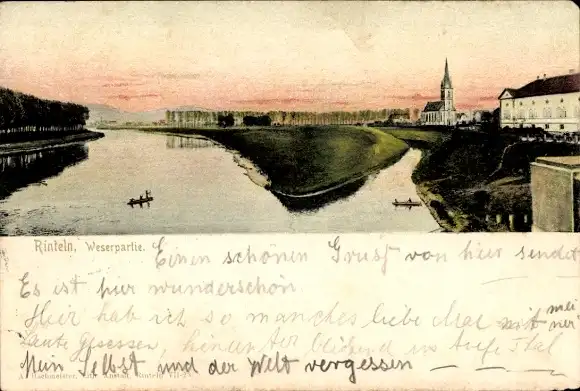 Rinteln, Weserpartie.
Einen schönen Gruß von hier sendet
Es ist hier wunderschön.
Hier hab ich so manches liebe Mal mit mei
ner
Laute gesessen, hinunter blickend ins tiefe Thal
Mein Selbst und der Welt vergessen